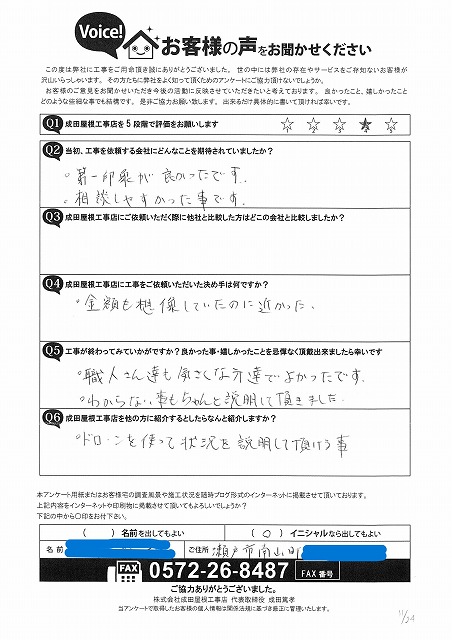 Voice!
お客様の声をお聞かせください
この度は弊社に工事をご用命頂き誠にありがとうございました。世の中には弊社の存在やサービスをご存知ないお客様が
沢山いらっしゃいます。その方たちに弊社をよく知って頂くためのアンケートにご協力頂けないでしょうか。
お客様のご意見をお聞かせいただき今後の活動に反映させていただきたいと考えております。良かったこと、嬉しかったこと
どのような些細な事でも結構です。是非ご協力お願い致します。出来るだけ具体的に書いて頂ければ幸いです。
Q1 成田屋根工事店を5段階で評価をお願いします ☆ ☆ ☆ ★ ☆
Q2 当初、工事を依頼する会社にどんなことを期待されていましたか？
。第一印象が良かったです.
。相談しやすかった事です.
Q3 成田屋根工事店にご依頼いただく際に他社と比較した方はどこの会社と比較しましたか？
Q4 成田屋根工事店に工事をご依頼いただいた決め手は何ですか？
。金額も想像していたのに近かった.
Q5 工事が終わってみていかがですか？良かった事・嬉しかったことを忌憚なく頂戴出来ましたら幸いです
。職人さん達も気さくな方達でよかったです.
。わからない事もちゃんと説明して頂きました.
Q6 成田屋根工事店を他の方に紹介するとしたらなんと紹介しますか？
。ドローンを使って状況を説明して頂ける事
本アンケート用紙またはお客様宅の調査風景や施工状況を随時ブログ形式のインターネットに掲載させて頂いております。
上記内容をインターネットや印刷物に掲載させて頂いてもよろしいでしょうか？
下記の中から〇印をお付け下さい。
（　　）名前を出してもよい （ ○ ）イニシャルなら出してもよい
名前 ご住所 瀬戸市南山町
FAX 0572-26-8487 FAX 番号
ご協力ありがとうございました。
株式会社成田屋根工事店 代表取締役 成田篤孝
当アンケートで取得したお客様の個人情報は関係法規に基づき厳正に管理いたします。
11/24